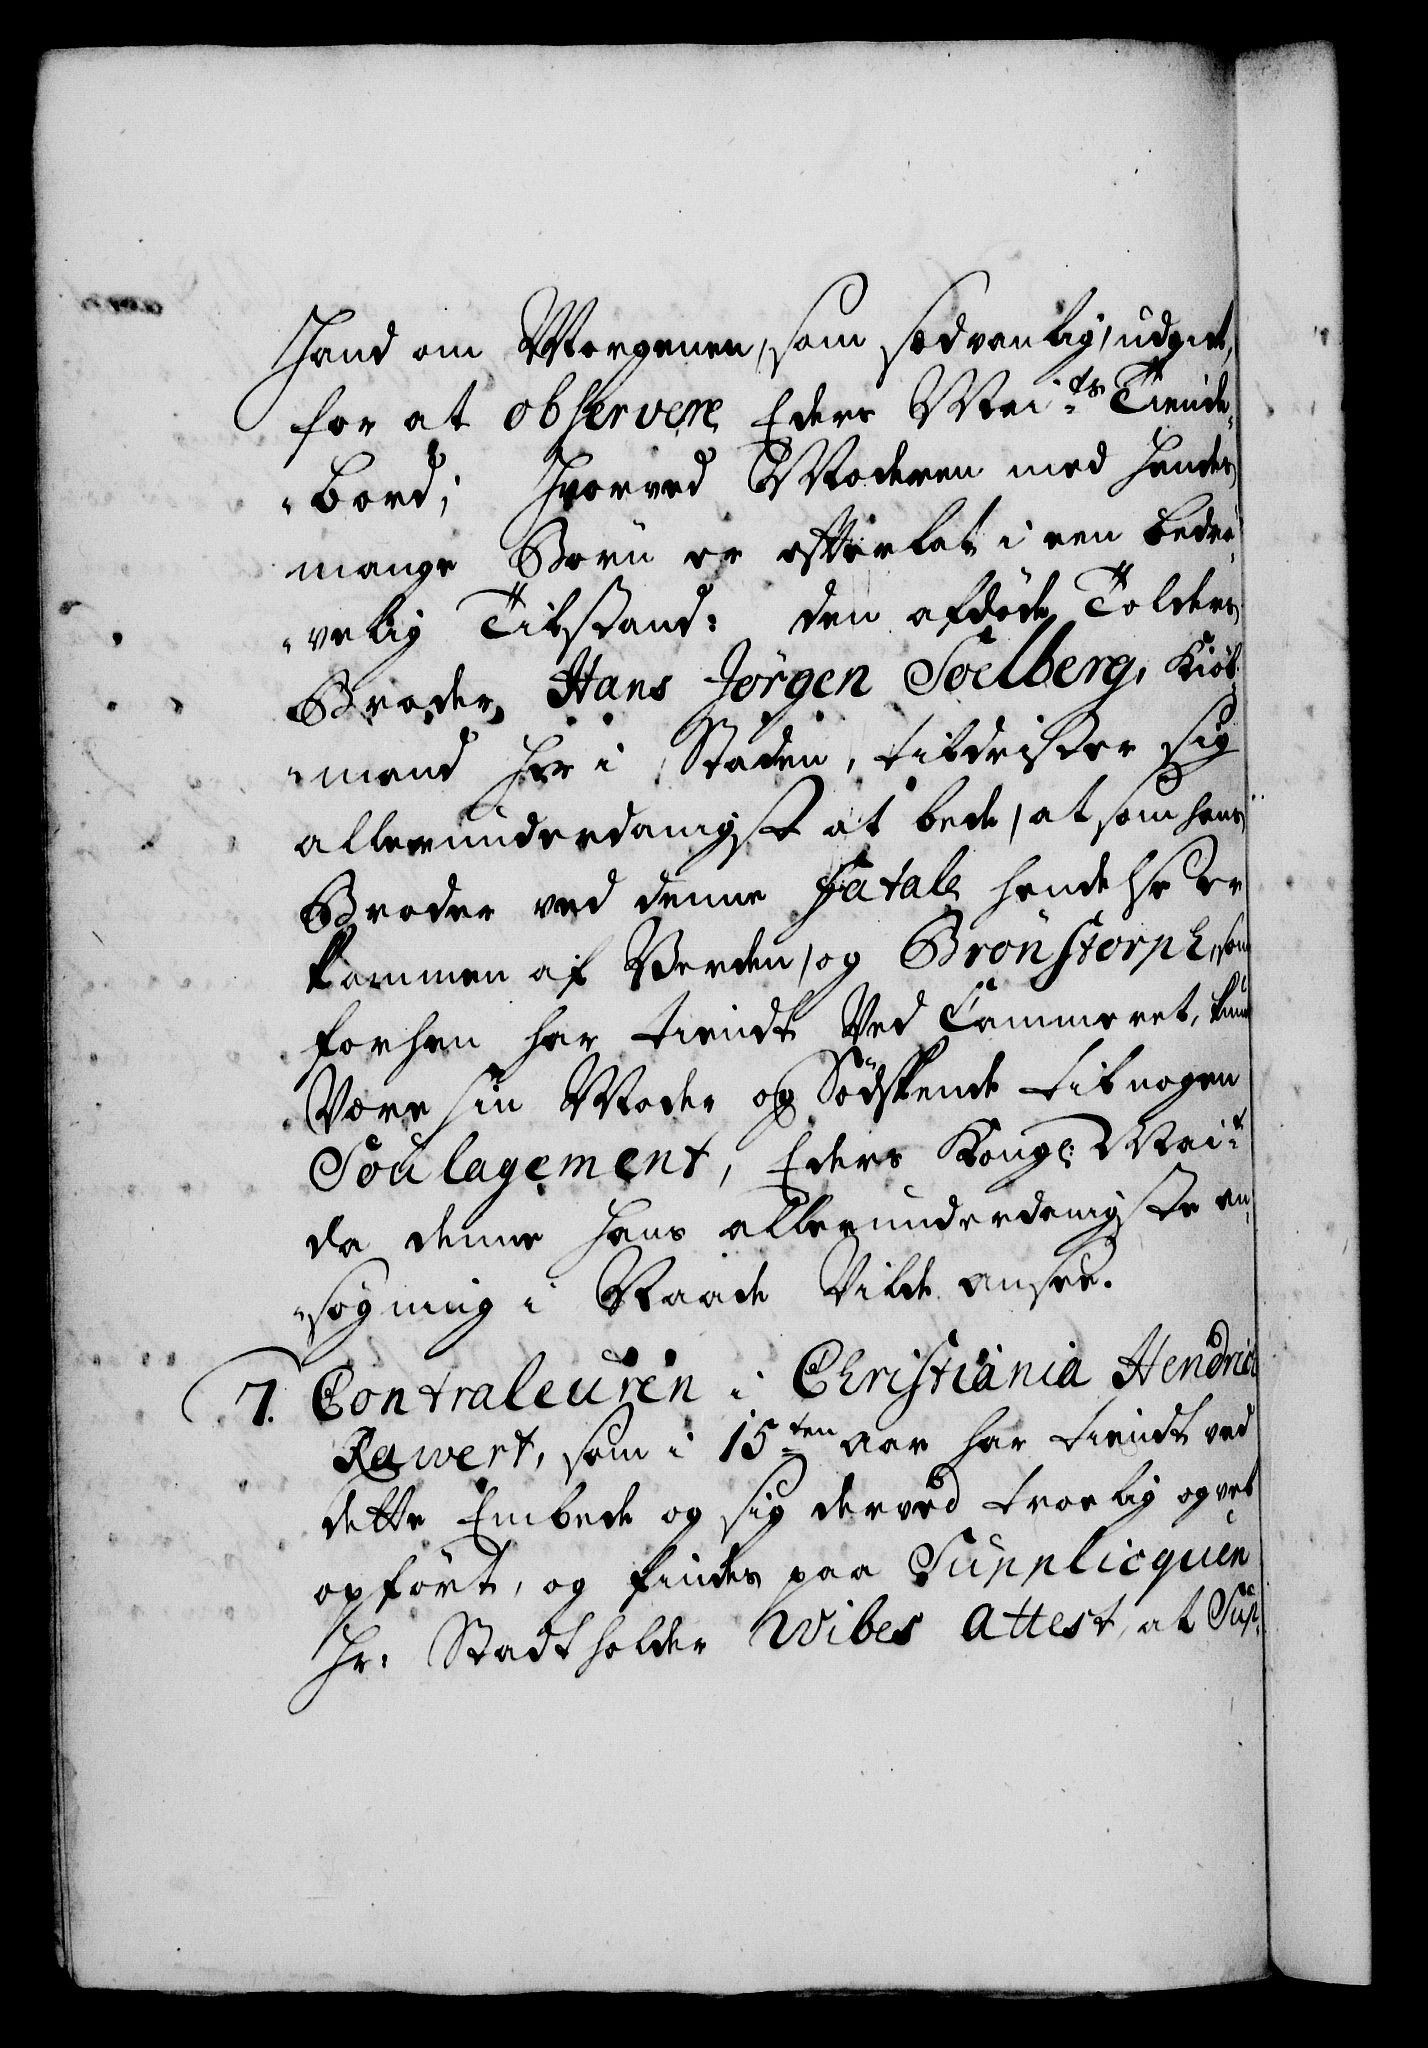 Hand om Morgenen, som sædvanlig, udgik,
for at observere Eders Mai:ts Tiende-
-bord; Hvorved Moderen med hendes
mange Børn er efterladt i een bedrø-
-velig Tilstand: Den afdøde Tolders
Broder, Hans Jørgen Soelberg, Kiøb-
-mand her i Staden, tildrister sig
allerunderdanigst at bede, at som hans
Broder ved denne Fatale hendelse er
kommen af Verden, og Brønstorph, som
forhen har tient Ved Cammeret, kunde
Være sin Moder og Sødskende til nogen
Soulagement, Eders Kongl: Mai:t
da denne hans allerunderdanigste an-
-søgning i Naade Vilde ansee.
7. Contraleuren i Christiania Hendrich
Rawert, som i 15ten Aar har tiendt ved
dette Embede og sig derved troelig og vel
opført, og findes paa Supplicquen
Hr. Stadtholder Wibes Attest, at Sup-